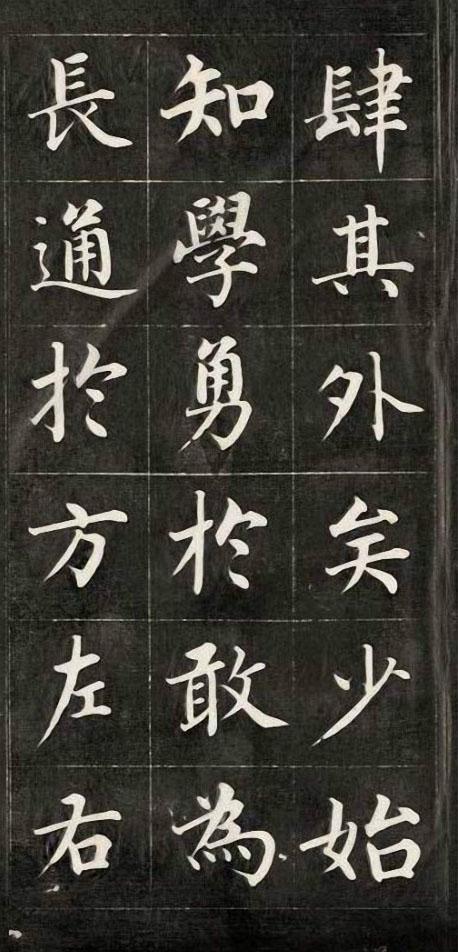 肆其外矣少始
知學勇於敢為
長通於方左右